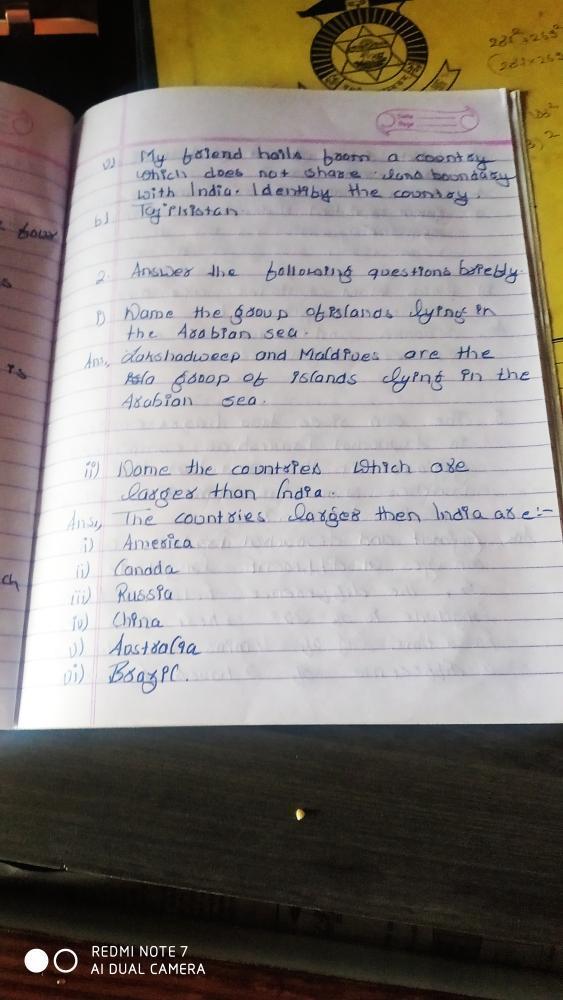 v) My friend hails from a country
which does not share land boundary
with India. Identify the country.
b) Tajikistan.
2. Answer the following questions briefly.
i) Name the group of islands lying in
the Arabian sea.
Ans, Lakshadweep and Maldives are the
group of islands lying in the
Arabian sea.
ii) Name the countries which are
larger than India.
Ans, The countries larger then India are:-
i) America
ii) Canada
iii) Russia
iv) China
v) Australia
vi) Brazil.
REDMI NOTE 7
AI DUAL CAMERA